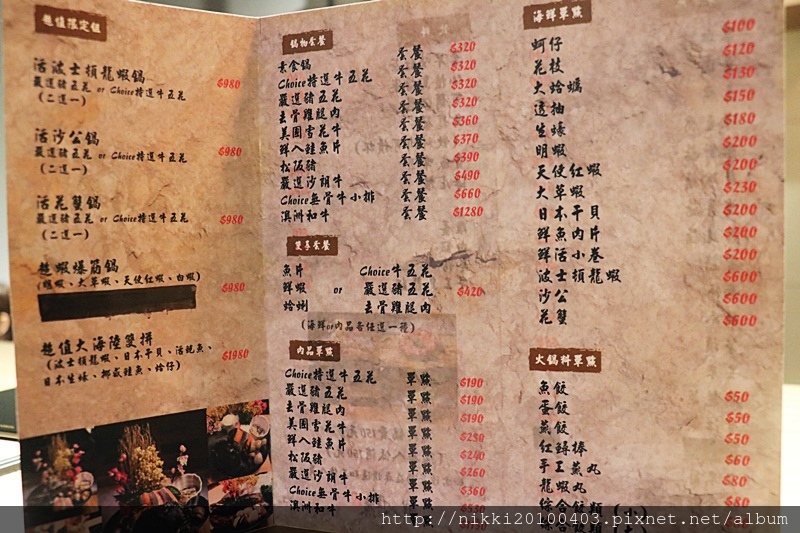 超值限定組
活波士頓龍蝦鍋 $980
嚴選豬五花 or Choice特選牛五花
(二選一)
活沙公鍋 $980
嚴選豬五花 or Choice特選牛五花
(二選一)
活花蟹鍋 $980
嚴選豬五花 or Choice特選牛五花
(二選一)
超蝦爆筋鍋 $980
(明蝦、大草蝦、天使紅蝦、白蝦)
超值大海陸雙拼 $1980
(波士頓龍蝦、日本干貝、活鮑魚、
日本生蠔、挪威鮭魚、蛤仔)
鍋物套餐
素食鍋 套餐 $320
Choice特選牛五花 套餐 $320
嚴選豬五花 套餐 $320
去骨雞腿肉 套餐 $320
美國雪花牛 套餐 $360
鮮人鮭魚片 套餐 $370
松阪豬 套餐 $390
嚴選沙朗牛 套餐 $490
Choice無骨牛小排 套餐 $660
澳洲和牛 套餐 $1280
雙享套餐
魚片 Choice牛五花
鮮蝦 or 嚴選豬五花 $420
蛤蜊 去骨雞腿肉
(海鮮or肉品各任選一種)
肉品單點
Choice特選牛五花 單點 $190
嚴選豬五花 單點 $190
去骨雞腿肉 單點 $190
美國雪花牛 單點 $230
鮮人鮭魚片 單點 $240
松阪豬 單點 $260
嚴選沙朗牛 單點 $360
Choice無骨牛小排 單點 $530
澳洲和牛 單點
海鮮單點
蚵仔 $100
花枝 $120
大蛤蠣 $130
透抽 $150
生蠔 $180
明蝦 $200
天使紅蝦 $200
大草蝦 $230
日本干貝 $200
鮮魚肉片 $200
鮮活小卷 $200
波士頓龍蝦 $600
沙公 $600
花蟹 $600
火鍋料單點
魚餃 $50
蛋餃 $50
燕餃 $50
紅蟳棒 $60
手工蒸丸 $80
龍蝦丸 $80
綜合餃類(小)
http://nikki20100403.pixnet.net/album